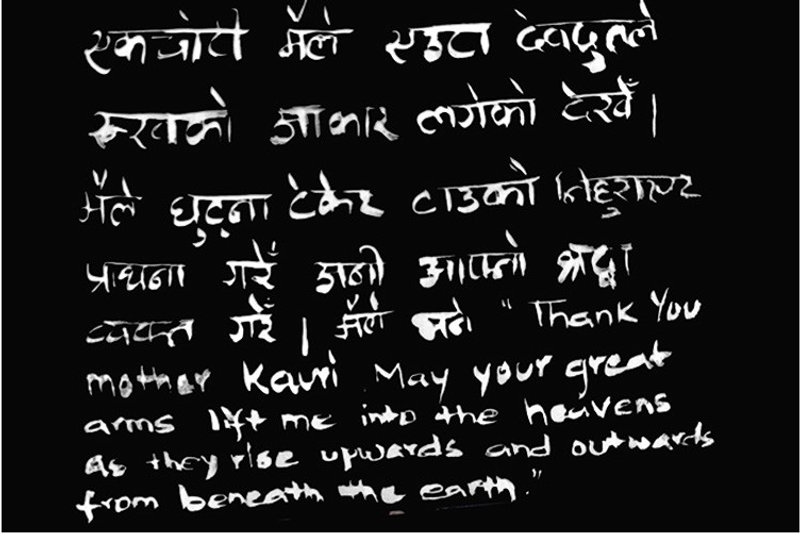 एकचोटी मैले एउटा देवदुतले
रूखको आकार लगेको देखेँ।
मैले घुट्ना टेकेर टाउको निहुराएर
प्राथना गरेँ अनी आफ्नो श्रद्धा
व्यक्त गरेँ। मैले भने "Thank You
mother Kauri May your great
arms lift me into the heavens
as they rise upwards and outwards
from beneath the earth."